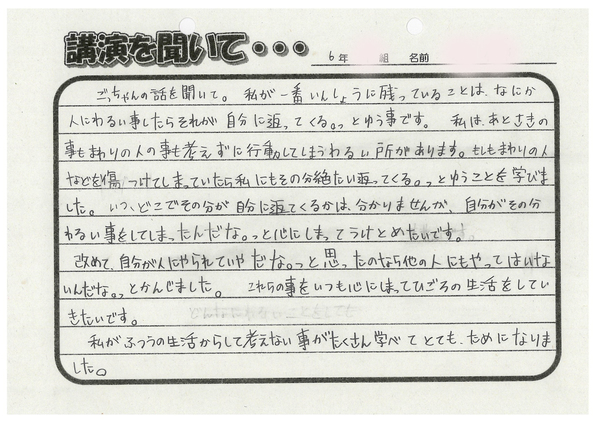 講演を聞いて・・・
6年 組 名前
ごっちゃんの話を聞いて。 私が一番いんしょうに残っていることは、なにか
人にわるい事したらそれが自分に返ってくる。っとゆう事です。 私は、あとさきの
事もまわりの人の事も考えずに行動してしまうわるい所があります。もしもまわりの人
などを傷つけてしまっていたら私にもその分絶たい返ってくる。っとゆうことを学びま
した。いつ、どこでその分が自分に返ってくるかは、分かりませんが、自分がその分
わるい事をしてしまったんだな。っと心にしまってうけとめたいです。
改めて、自分が人にやられていやだな。っと思ったのなら他の人にもやってはいけな
いんだな。っとかんじました。 これらの事をいつも心にしまってひごろの生活をしてい
きたいです。
私がふつうの生活からして考えない事がたくさん学べてとても、ためになりま
した。